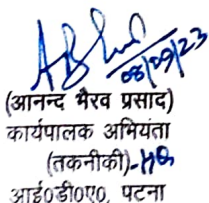 08/09/23
(आनन्द भैरव प्रसाद)
कार्यपालक अभियंता
(तकनीकी)-HQ
आई०डी०ए०, पटना